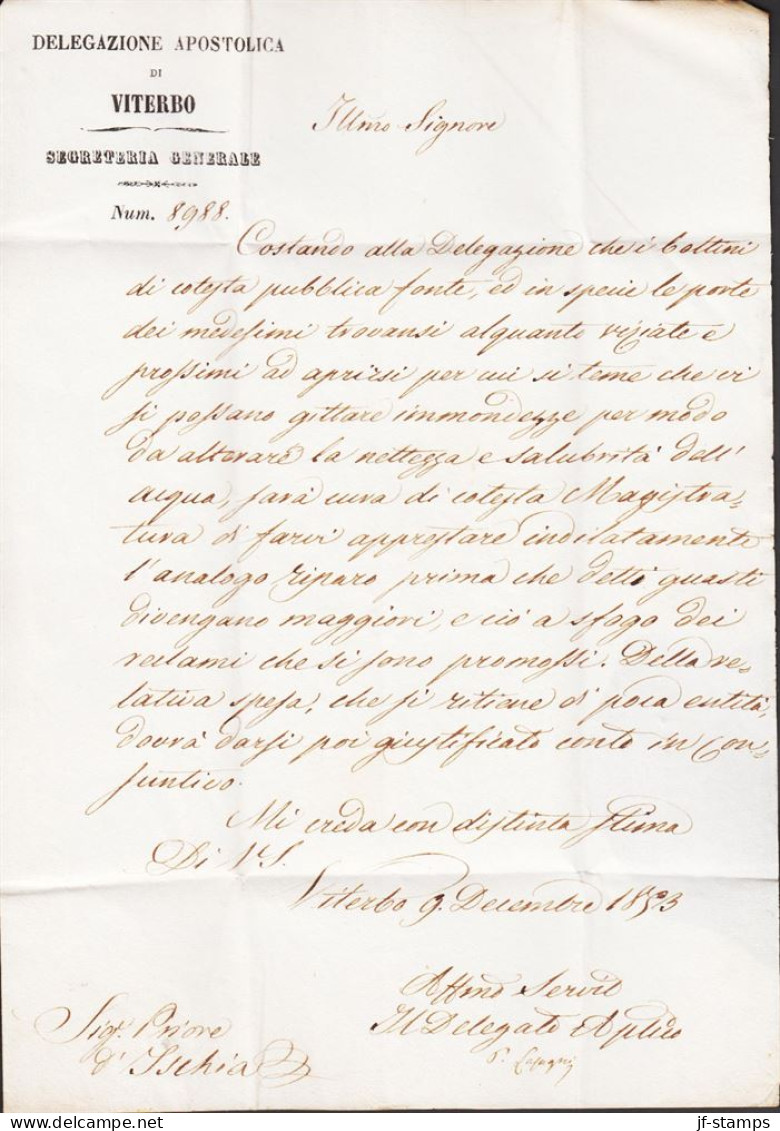 DELEGAZIONE APOSTOLICA
DI
VITERBO
SEGRETERIA GENERALE
Num. 8988.
Illmo Signore
Costando alla Delegazione che i bottini
di cotesta pubblica fonte, ed in specie le porte
dei medesimi trovansi alquanto viziate e
prossimi ad aprirsi per cui si teme che vi
si possano gittare immondezze per modo
da alterare la nettezza e salubrità dell'
acqua, sarà cura di cotesta Magistra-
tura di farvi apprestare indilatamente
l'analogo riparo prima che detti guasti
divengano maggiori, e ciò a sfogo dei
reclami che si sono promossi. Della re-
lativa spesa, che si ritiene di poca entità,
dovrà darsi poi giustificato conto in Con-
suntivo.
Mi creda con distinta stima
Di V. S.
Viterbo 9. Decembre 1853
Affmo Servit
Il Delegato Aplico
Sigr. Priore
d'Ischia
delcampe.net
jf-stamps